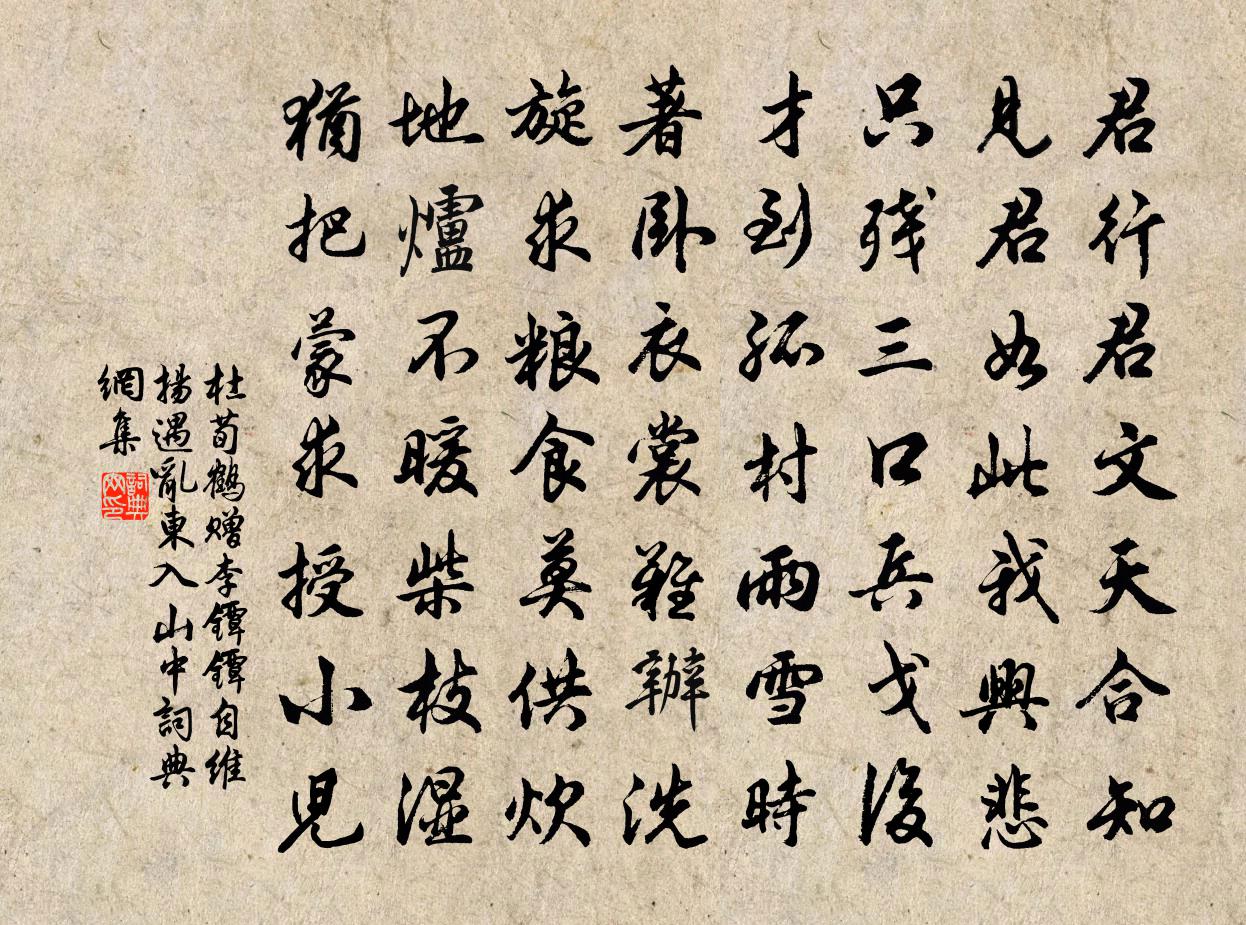 君行君文天合知
見君如此我興悲
只残三口兵戈後
才到孤村雨雪時
著卧衣裳難辦洗
旋求粮食莫供炊
地爐不暖柴枝湿
猶把蒙求授小兒
杜荀鶴赠李鐔鐔自维
揚遇亂東入山中詞典
網集
詞典網印